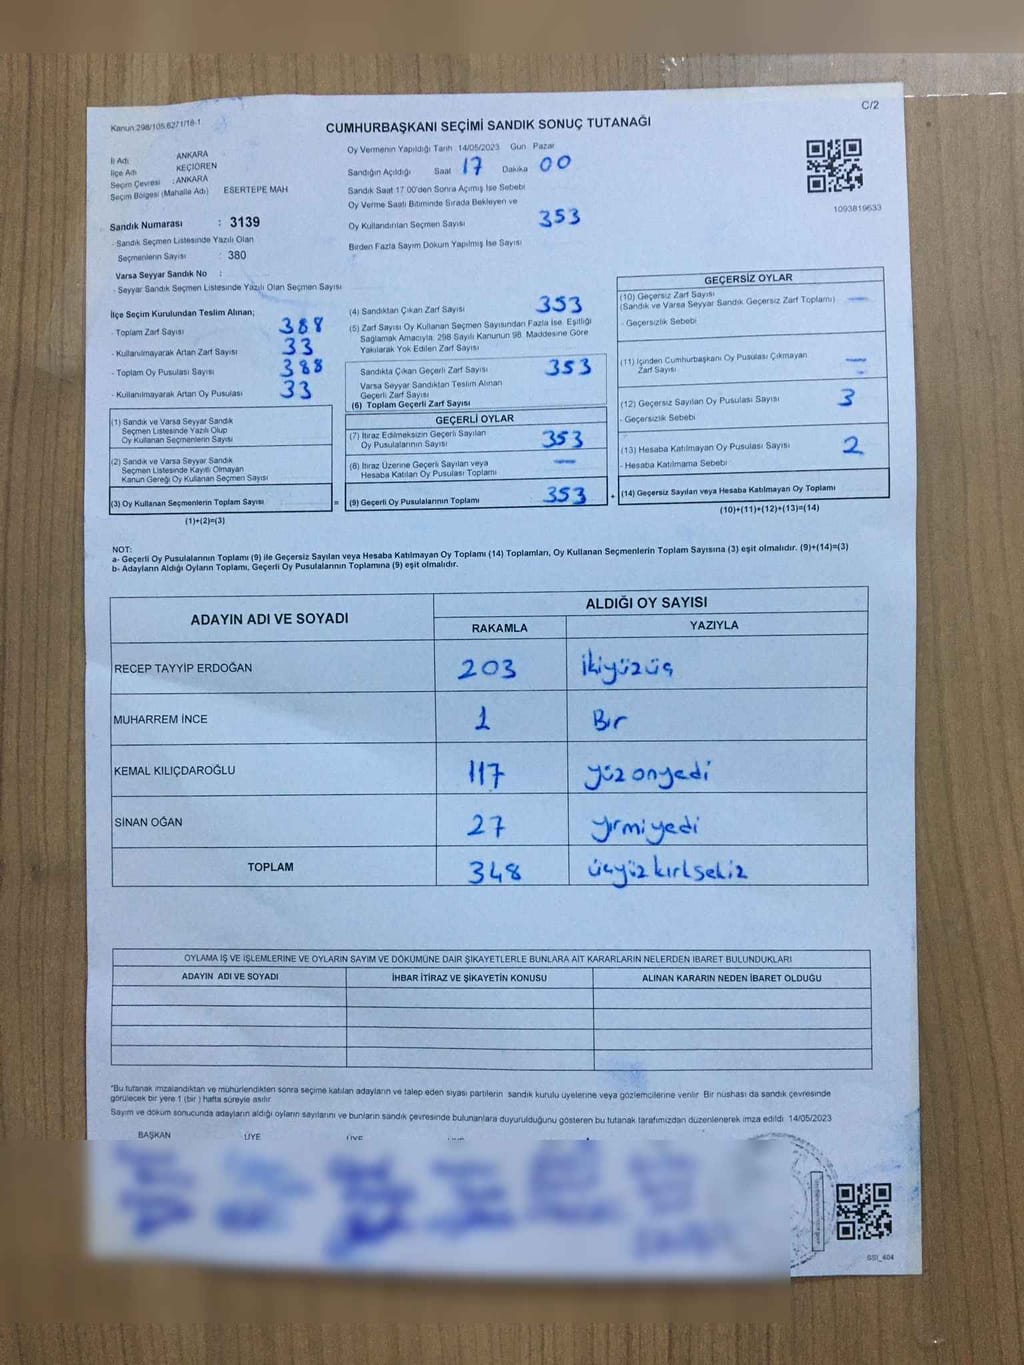 C/2
Kanun:298/105.6271/18-1
CUMHURBAŞKANI SEÇİMİ SANDIK SONUÇ TUTANAĞI
İl Adı ANKARA
İlçe Adı KEÇİÖREN
Seçim Çevresi : ANKARA
Seçim Bölgesi (Mahalle Adı) ESERTEPE MAH
Sandık Numarası : 3139
- Sandık Seçmen Listesinde Yazılı Olan
Seçmenlerin Sayısı : 380
Varsa Seyyar Sandık No :
- Seyyar Sandık Seçmen Listesinde Yazılı Olan Seçmen Sayısı
Oy Vermenin Yapıldığı Tarih 14/05/2023 Gün Pazar
Sandığın Açıldığı Saat 17 Dakika 00
Sandık Saat 17 00'den Sonra Açımış İse Sebebi
Oy Verme Saati Bitiminde Sırada Bekleyen ve
Oy Kullandırılan Seçmen Sayısı 353
Birden Fazla Sayım Döküm Yapılmış İse Sayısı
1093819633
İlçe Seçim Kurulundan Teslim Alınan;
- Toplam Zarf Sayısı 388
- Kullanılmayarak Artan Zarf Sayısı 33
- Toplam Oy Pusulası Sayısı 388
- Kullanılmayarak Artan Oy Pusulası 33
(1) Sandık ve Varsa Seyyar Sandık
Seçmen Listesinde Yazılı Olup
Oy Kullanan Seçmenlerin Sayısı
(2) Sandık ve Varsa Seyyar Sandık
Seçmen Listesinde Kayıtlı Olmayan
Kanun Gereği Oy Kullanan Seçmen Sayısı
(3) Oy Kullanan Seçmenlerin Toplam Sayısı =
(1)+(2)=(3)
(4) Sandıktan Çıkan Zarf Sayısı 353
(5) Zarf Sayısı Oy Kullanan Seçmen Sayısından Fazla İse, Eşitliği
Sağlamak Amacıyla; 298 Sayılı Kanunun 98. Maddesine Göre
Yakılarak Yok Edilen Zarf Sayısı
Sandıkta Çıkan Geçerli Zarf Sayısı 353
Varsa Seyyar Sandıktan Teslim Alınan
Geçerli Zarf Sayısı
(6) Toplam Geçerli Zarf Sayısı
GEÇERLİ OYLAR
(7) İtiraz Edilmeksizin Geçerli Sayılan
Oy Pusulalarının Sayısı 353
(8) İtiraz Üzerine Geçerli Sayılan veya
Hesaba Katılan Oy Pusulası Toplamı —
(9) Geçerli Oy Pusulalarının Toplamı 353 +
GEÇERSİZ OYLAR
(10) Geçersiz Zarf Sayısı
(Sandık ve Varsa Seyyar Sandık Geçersiz Zarf Toplamı) —
- Geçersizlik Sebebi
(11) İçinden Cumhurbaşkanı Oy Pusulası Çıkmayan
Zarf Sayısı —
(12) Geçersiz Sayılan Oy Pusulası Sayısı 3
- Geçersizlik Sebebi
(13) Hesaba Katılmayan Oy Pusulası Sayısı 2
- Hesaba Katılmama Sebebi
(14) Geçersiz Sayılan veya Hesaba Katılmayan Oy Toplamı
(10)+(11)+(12)+(13)=(14)
NOT:
a- Geçerli Oy Pusulalarının Toplamı (9) ile Geçersiz Sayılan veya Hesaba Katılmayan Oy Toplamı (14) Toplamları, Oy Kullanan Seçmenlerin Toplam Sayısına (3) eşit olmalıdır. (9)+(14)=(3)
b- Adayların Aldığı Oyların Toplamı, Geçerli Oy Pusulalarının Toplamına (9) eşit olmalıdır.
ADAYIN ADI VE SOYADI ALDIĞI OY SAYISI
RAKAMLA YAZIYLA
RECEP TAYYİP ERDOĞAN 203 ikiyüzüç
MUHARREM İNCE 1 Bir
KEMAL KILIÇDAROĞLU 117 yüz onyedi
SİNAN OĞAN 27 yırmi yedi
TOPLAM 348 üçyüz kırksekiz
OYLAMA İŞ VE İŞLEMLERİNE VE OYLARIN SAYIM VE DÖKÜMÜNE DAİR ŞİKAYETLERLE BUNLARA AİT KARARLARIN NELERDEN İBARET BULUNDUKLARI
ADAYIN ADI VE SOYADI İHBAR İTİRAZ VE ŞİKAYETİN KONUSU ALINAN KARARIN NEDEN İBARET OLDUĞU
*Bu tutanak imzalandıktan ve mühürlendikten sonra seçime katılan adayların ve talep eden siyasi partilerin sandık kurulu üyelerine veya gözlemcilerine verilir Bir nüshası da sandık çevresinde
görülecek bir yere 1 (bir ) hafta süreyle asılır.
Sayım ve döküm sonucunda adayların aldığı oyların sayılarını ve bunların sandık çevresinde bulunanlara duyurulduğunu gösteren bu tutanak tarafımızdan düzenlenerek imza edildi 14/05/2023
BAŞKAN ÜYE ÜYE
SSI_404